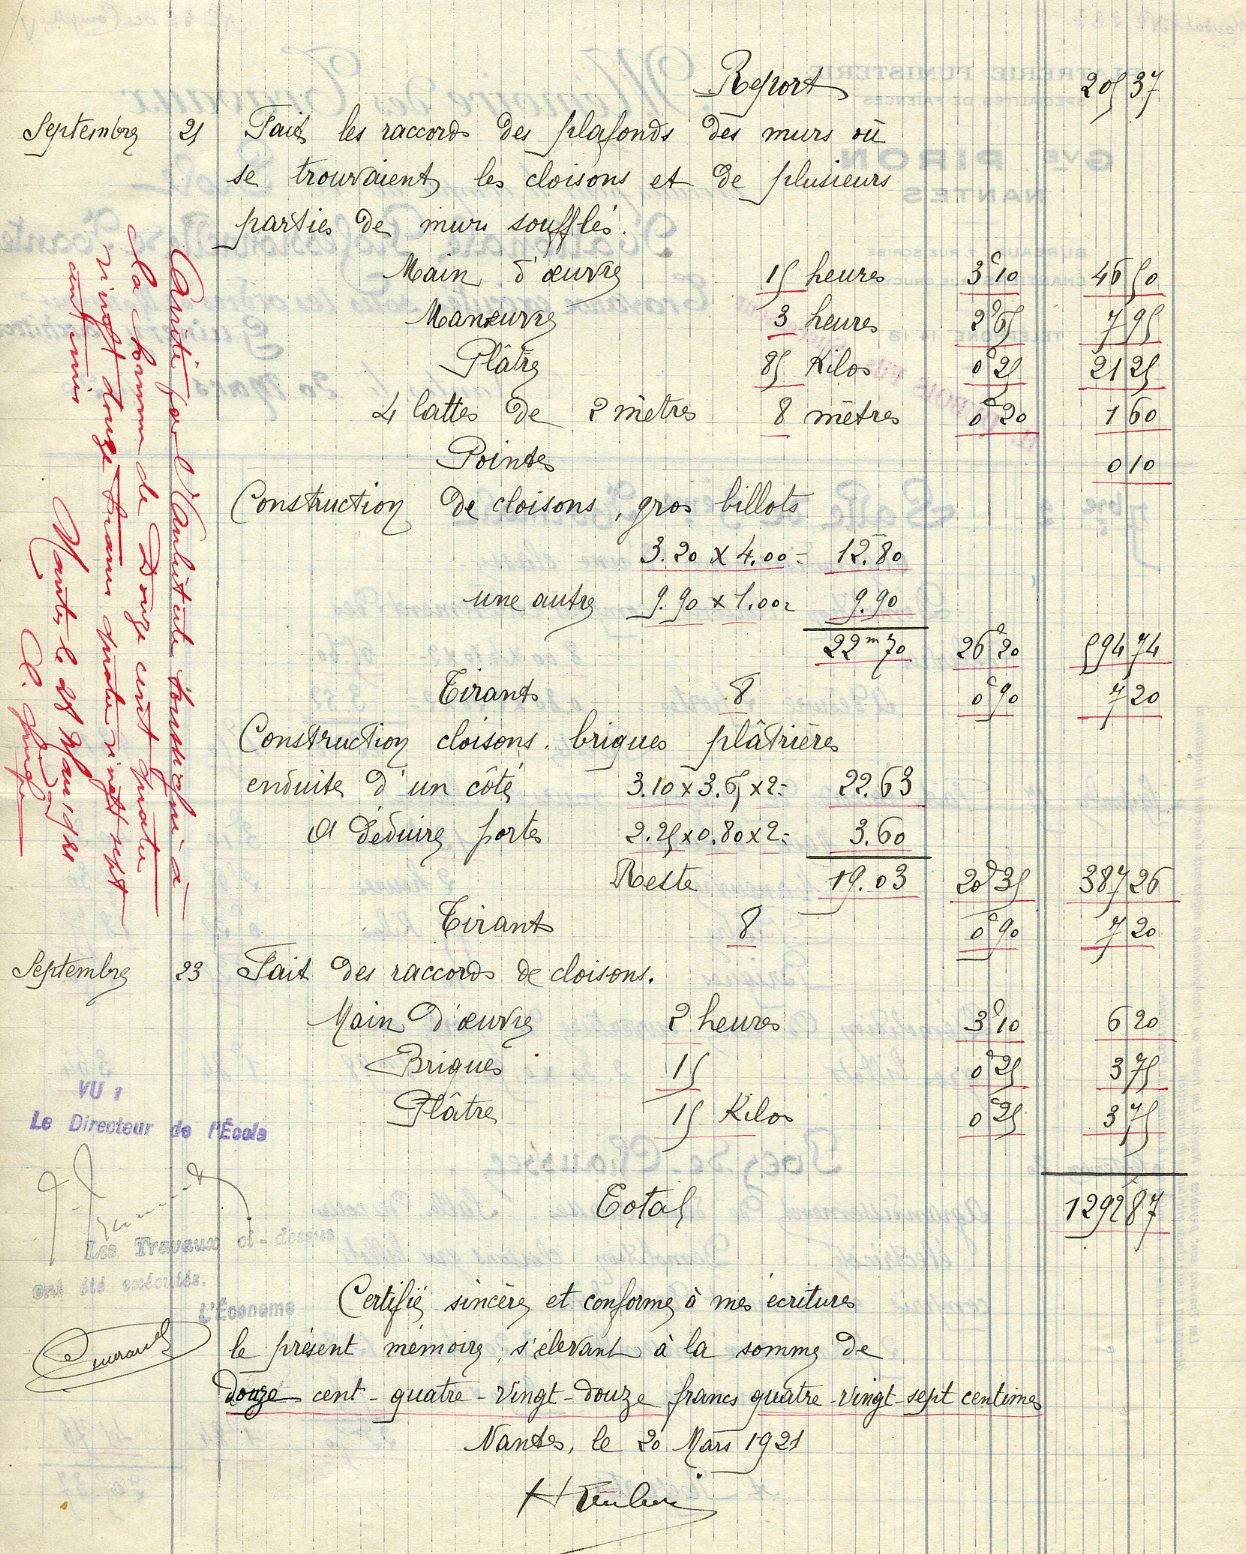 Report 205 37
Septembre 21 Fait les raccords des plafonds des murs où
se trouvaient les cloisons et de plusieurs
parties de murs soufflés.
Main d'œuvre 15 heures 3f10 46 50
Manœuvre 3 heures 2f65 7 95
Plâtre 85 Kilos 0f25 21 25
4 lattes de 2 mètres 8 mètres 0f20 1 60
Pointes 0 10
Construction de cloisons, gros billots
3.20 x 4.00 = 12.80
une autre 9.90 x 1.00 = 9.90
22m70 26f20 594 74
Tirants 8 0f90 7 20
Construction cloisons. briques plâtrières
enduites d'un côté 3.10 x 3.65 x 2 = 22.63
A déduire portes 2.25 x 0.80 x 2 = 3.60
Reste 19.03 20f35 387 26
Tirants 8 0f90 7 20
Septembre 23 Fait des raccords de cloisons.
Main d'œuvre 2 heures 3f10 6 20
Briques 15 0f25 3 75
Plâtre 15 Kilos 0f25 3 75
Total 1292 87
Certifié sincère et conforme à mes écritures
le présent mémoire, s'élevant à la somme de
douze cent-quatre-vingt-douze francs quatre-vingt-sept centimes
Nantes, le 20 Mars 1921
Arrêté par l'Architecte soussigné à
la somme de Douze cent quatre
vingt douze francs quatre vingt sept
centimes
Nantes le 28 Mars 1921
VU :
Le Directeur de l'École
Les Travaux ci-dessus
ont été exécutés.
L'Économe
Durand